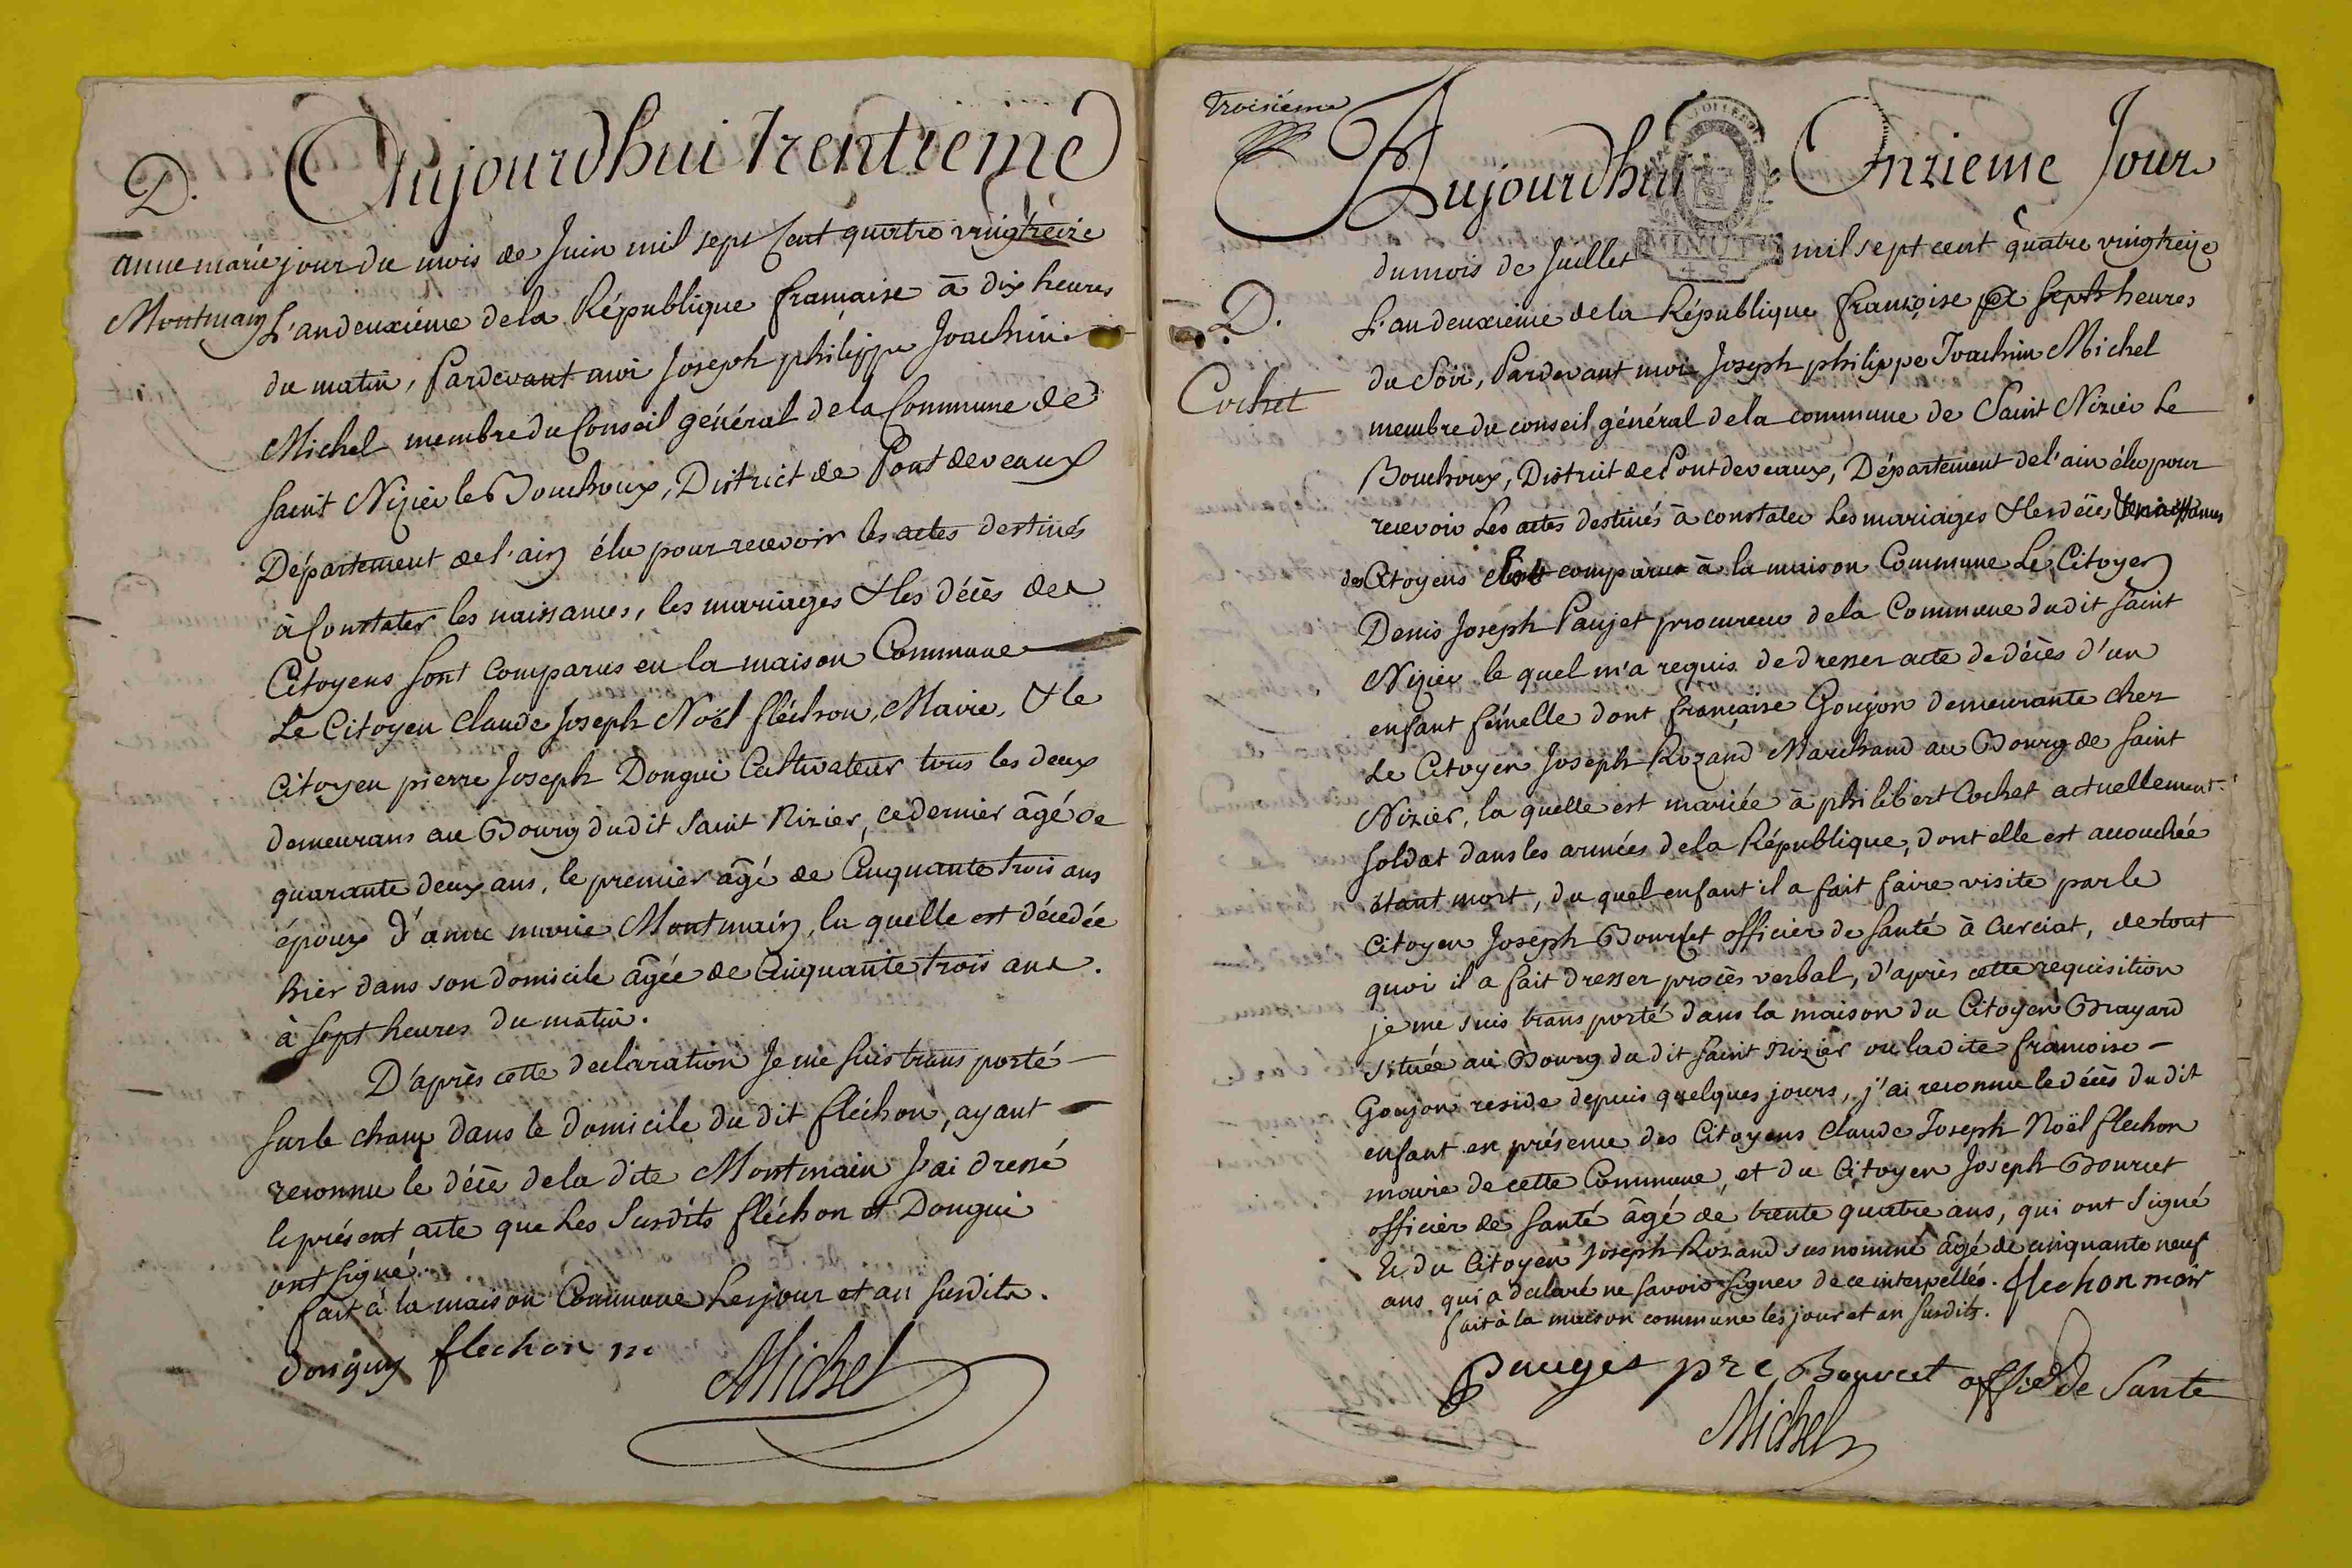 D.
anne marie
Montmain
Aujourdhui trentieme
jour du mois de Juin mil sept Cent quatre vingtreize
L'an deuxième de la République française à dix heures
du matin, Pardevant moi Joseph philippe Joachim
Michel membre du Conseil général de la Commune de
saint Nizier le Bouchoux, District de Pont de veaux
Département de l'ain élu pour recevoir les actes destinés
à Constater les naissances, les mariages & les décès des
Citoyens sont Comparus en la maison Commune
Le Citoyen Claude Joseph Noël fléchon, Maire, & le
Citoyen pierre Joseph Dongui Cultivateur tous les deux
demeurans au Bourg dudit saint Nizier, ce dernier âgé de
quarante deux ans, le premier âgé de Cinquante trois ans
époux d'anne marie Montmain, la quelle est décédée
hier dans son domicile âgée de Cinquante trois ans.
à sept heures du matin.
D'après cette declaration Je me suis transporté
sur le champ dans le domicile du dit fléchon, ayant
reconnu le décè de la dite Montmain J'ai dressé
le présent acte que les susdits fléchon et Dongui
ont signé.
fait à la maison Commune les jour et an susdits.
donguy flechon m
Michel
troisième
Aujourdhui Onzieme Jour
MINUTE
du mois de Juillet mil sept cent quatre vingtreize
D.
Cochet
L'an deuxieme de la République françoise à sept heures
du Soir, Pardevant moi Joseph philippe Joachim Michel
membre du conseil général de la commune de Saint Nizier Le
Bouchoux, District de Pont de veaux, Département de l'ain élu pour
recevoir Les actes destinés à constater les mariages & les décès & naissances
des Citoyens Est comparu à la maison Commune Le Citoyen
Denis Joseph Paujet procureur de la Commune du dit saint
Nizier le quel m'a requis de dresser acte de décès d'un
enfant fémelle dont francaise Goujon demeurante chez
Le Citoyen Joseph Rozand Marchand au Bourg de saint
Nizier, la quelle est mariée à philibert Cochet actuellement
soldat dans les armées de la République, dont elle est accouchée
étant mort, du quel enfant il a fait faire visite par le
Citoyen Joseph Bourcet officier de santé à Curciat, de tout
quoi il a fait dresser procès verbal, d'après cette requisition
je me suis transporté dans la maison du Citoyen Brayard
située au Bourg du dit saint Nizier ou ladite francoise
Goujon reside depuis quelques jours, j'ai reconnu le décès du dit
enfant en présence des Citoyens Claude Joseph Noël flechon
maire de cette Commune, et du Citoyen Joseph Bourcet
officier de santé âgé de trente quatre ans, qui ont signé
& du Citoyen Joseph Rozand sus nommé âgé de cinquante neuf
ans qui a déclaré ne savoir signer de ce interpellés. flechon mair
fait à la maison commune les jour et an susdits.
pauget pre Bourcet offier de Sante
Michel